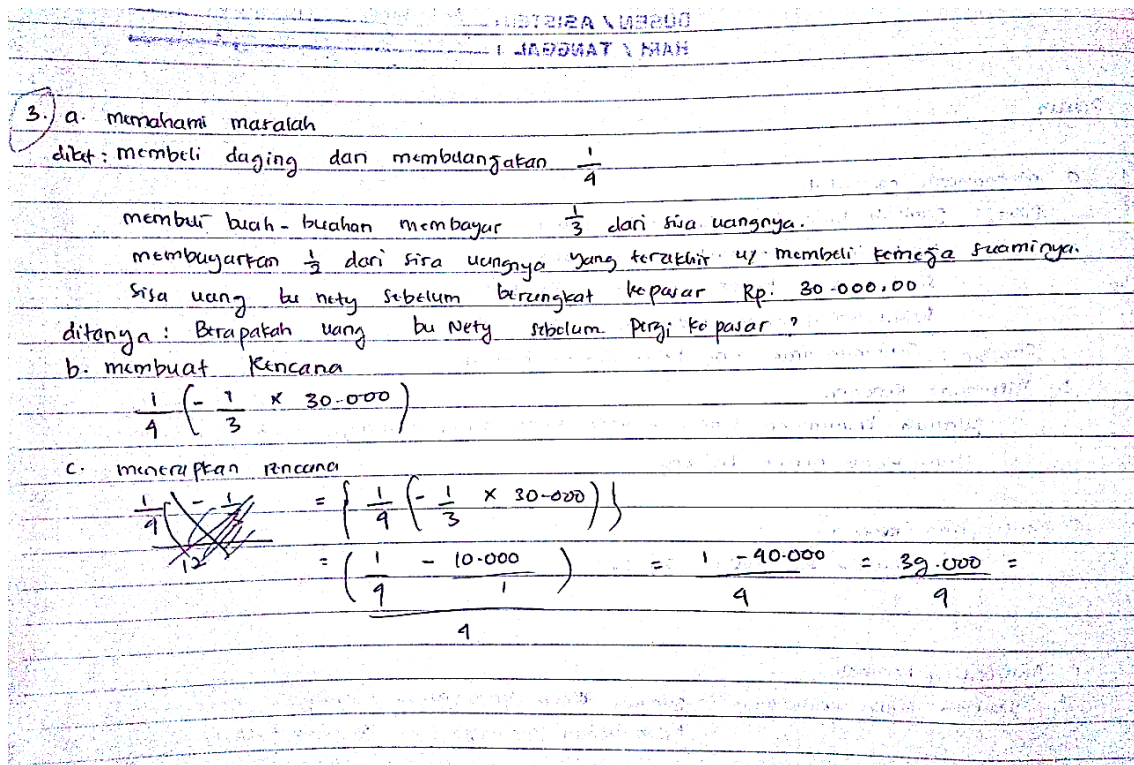 DOSEN / ASISTEN
HARI / TANGGAL :
3.) a. memahami masalah
diket : membeli daging dan membelanjakan 1/4
membeli buah - buahan membayar 1/3 dari sisa uangnya.
membayarkan 1/2 dari sisa uangnya yang terakhir u/ membeli kemeja suaminya.
Sisa uang bu nety sebelum berangkat kepasar Rp: 30.000,00
ditanya : Berapakah uang bu Nety sebelum pergi ke pasar ?
b. membuat Rencana
1/4 (- 1/3 × 30.000)
c. menerapkan rencana
= { 1/4 (- 1/3 × 30.000) }
12 = ( 1/4 - 10.000/1 ) / 4 = 1 - 40.000 / 4 = 39.000 / 4 =